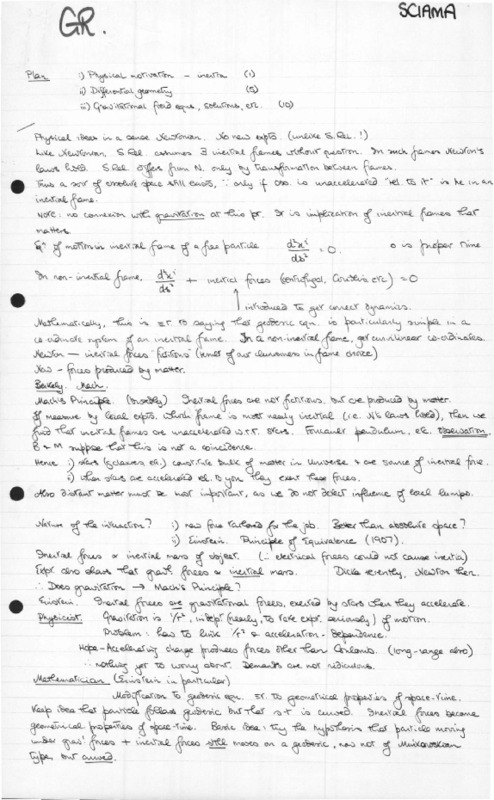 GR.
SCIAMA
Plan i) Physical motivation – inertia (1)
ii) Differential geometry (5)
iii) Gravitational field eqns, solutions, etc. (10)
Physical ideas in a sense Newtonian. No new expts. (unlike S. Rel.!)
Like Newtonian, S. Rel. assumes ∃ inertial frames without question. In such frames Newton's
laws hold. S. Rel. differs from N. only by transformation between frames.
Thus a sort of absolute space still exists, ∵ only if obs. is unaccelerated "rel. to it" is he in an
inertial frame.
Note: no connexion with gravitation at this pt. It is implication of inertial frames that
matters.
Eqn of motion in inertial frame of a free particle d²xⁱ/ds² = 0. s is proper time
In non-inertial frame, d²xⁱ/ds² + inertial forces (centrifugal, Coriolis etc.) = 0
introduced to get correct dynamics.
Mathematically, this is to saying that geodesic eqn. is particularly simple in a
co-ordinate system of an inertial frame. In a non-inertial frame, get curvilinear co-ordinates.
Newton — inertial forces 'fictitious' (result of our clumsiness in frame choice)
Now – forces produced by matter.
Berkeley, Mach.
Mach's Principle. (broadly) Inertial forces are not fictitious, but are produced by matter.
If measure by local expts. which frame is most nearly inertial (i.e. N's laws hold), then we
find that inertial frames are unaccelerated w.r.t. stars. Foucault pendulum, etc. Observation.
B & M suppose that this is not a coincidence.
Hence i) stars (galaxies etc.) constitute bulk of matter in Universe & are source of inertial force.
ii) when stars are accelerated rel. to you they exert these forces.
Also distant matter must be most important, as we do not detect influence of local lumps.
Nature of the interaction? i) new force tailored for the job. Better than absolute space?
ii) Einstein. Principle of Equivalence (1907).
Inertial forces ∝ inertial mass of object. (∴ electrical forces could not cause inertia)
Expt also shows that gravl. forces ∝ inertial mass. Dicke recently, Newton then.
∴ Does gravitation → Mach's Principle?
Einstein. Inertial forces are gravitational forces, exerted by stars when they accelerate.
Physicist. Gravitation is 1/r², indept (nearly, to take expt. seriously) of motion.
Problem: how to link 1/r² & acceleration-dependence.
Hope – Accelerating charge produces forces other than Coulomb. (long-range also)
∴ nothing yet to worry about. Demands are not ridiculous.
Mathematician (Einstein in particular)
Modification to geodesic eqn. to geometrical properties of space-time.
Keep idea that particle follows geodesic but that s-t is curved. Inertial forces become
geometrical properties of space-time. Basic idea: try the hypothesis that particle moving
under gravl forces + inertial forces still moves on a geodesic, now not of Minkowskian
type, but curved.